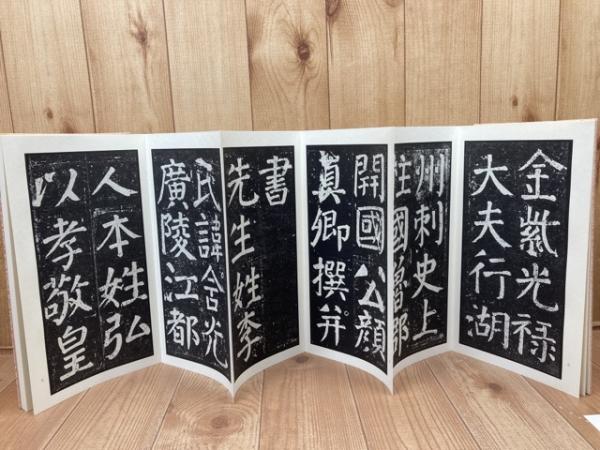 金紫光禄
大夫行湖
州刺史上
柱國魯郡
開國公顔
真卿撰并
書
先生姓李
氏諱含光
廣陵江都
人本姓弘
以孝敬皇